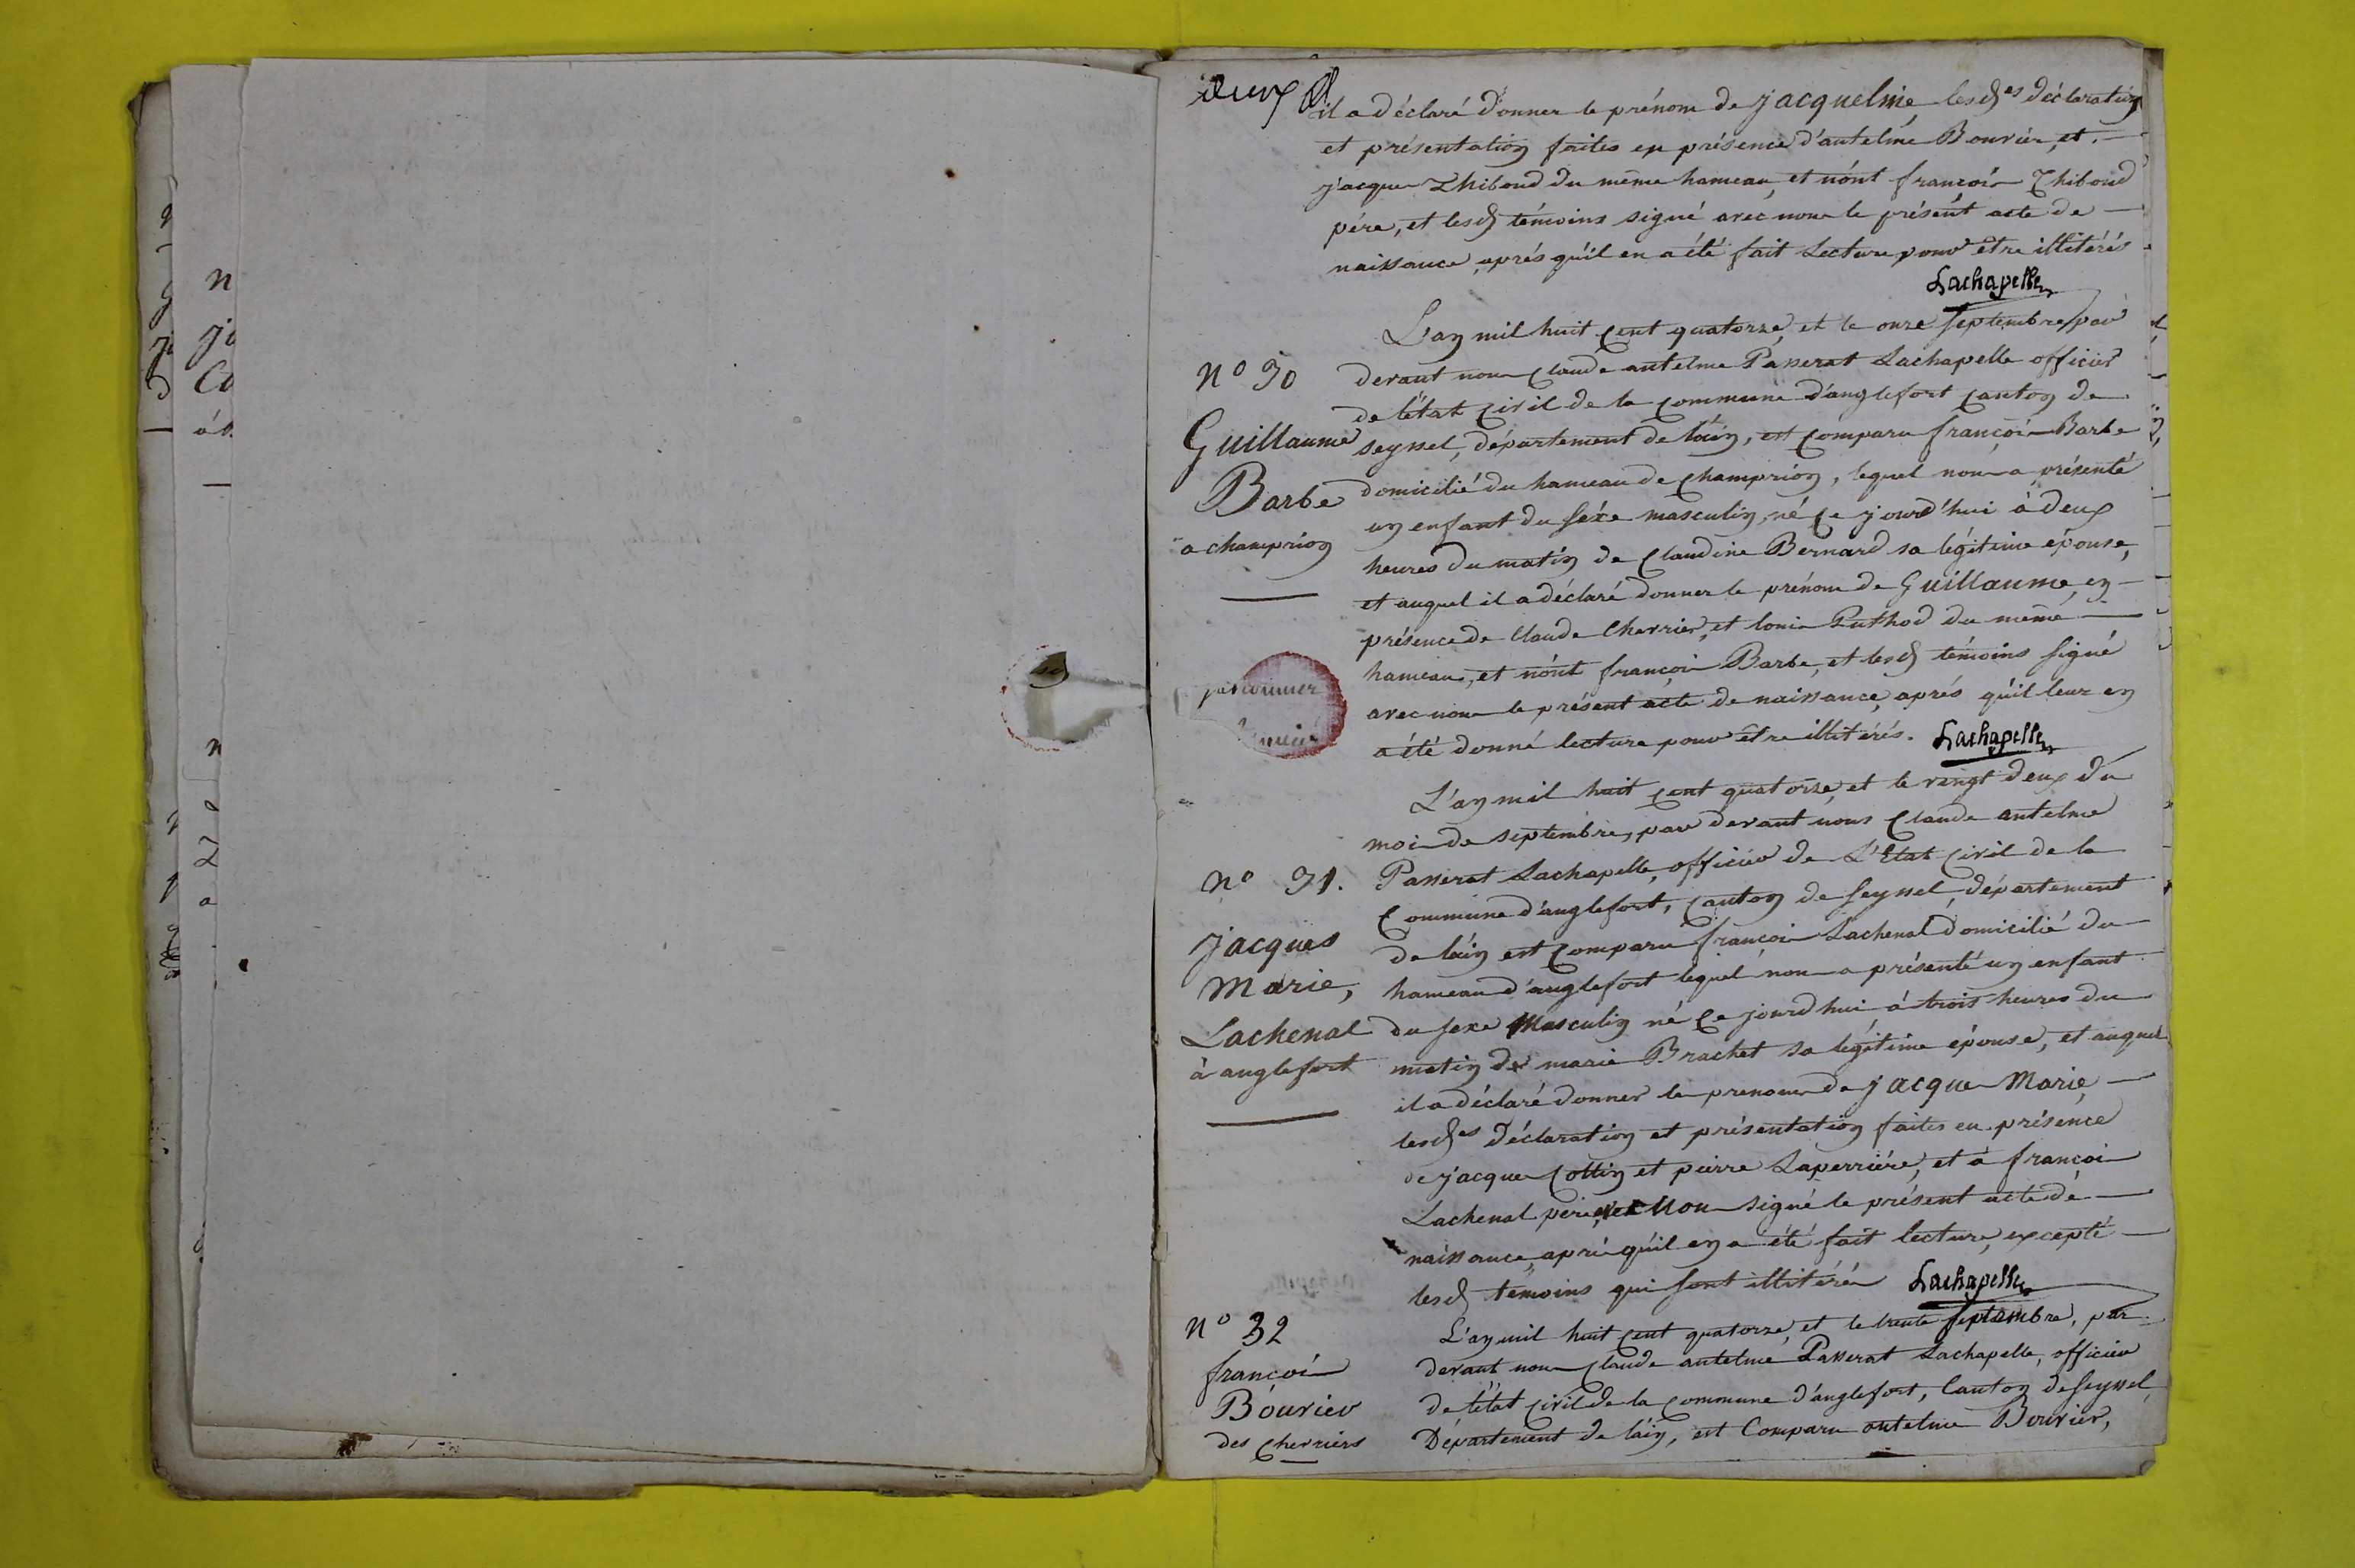 deux
il a déclaré donner le prénom de jacqueline, lesd.es déclaration
et présentation faites en présence d'antelme Bouvier, et
jacques Thiboud du même hameau, et n'ont françois Thiboud
père, et lesd. témoins signé avec nous le présent acte de
naissance, après qu'il en a été fait Lecture, pour être illitérés
Lachapelle
N° 30
Guillaume
Barbe
a champrion
L'an mil huit cent quatorze, et le onze septembre, par
devant nous Claude antelme Passerat Lachapelle officier
de l'état civil de la commune d'anglefort canton de
seyssel, département de l'ain, est comparu françois Barbe
domicilié du hameau de Champrion, lequel nous a présenté
un enfant du séxe masculin, né ce jourd'hui à deux
heures du matin de Claudine Bernard sa légitime épouse,
et auquel il a déclaré donner le prénom de Guillaume, en
présence de Claude Cherrier, et louis Puthod du même
hameau, et n'ont françois Barbe, et lesd. témoins signé
avec nous le présent acte de naissance, après qu'il leur en
a été donné lecture pour être illitérés. Lachapelle
N° 31.
Jacques
Marie,
Lachenal
à anglefort
L'an mil huit cent quatorze, et le vingt deux du
mois de septembre, par devant nous Claude antelme
Passerat Lachapelle, officier de L'Etat civil de la
Commune d'anglefort, canton de Seyssel, département
de lain est comparu françois Lachenal domicilié du
hameau d'anglefort lequel nous a présenté un enfant
du sexe Masculin né ce jourd'hui à trois heures du
matin de marie Brachet sa légitime épouse, et auquel
il a déclaré donner le prenom de jacques Marie,
lesd.es déclaration et présentation faites en présence
de jacques Collin et pierre Laperrière, et a françois
Lachenal père, avec Nous signé le présent acte de
naissance, après qu'il en a été fait lecture, excepté
lesd. témoins qui sont illitérés Lachapelle
N° 32
françois
Bouvier
des cherriers
L'an mil huit cent quatorze, et le trente septembre, par
devant nous Claude antelme Passerat Lachapelle, officier
de l'état civil de la commune d'anglefort, Canton de Seyssel,
Département de lain, est Comparu antelme Bouvier,